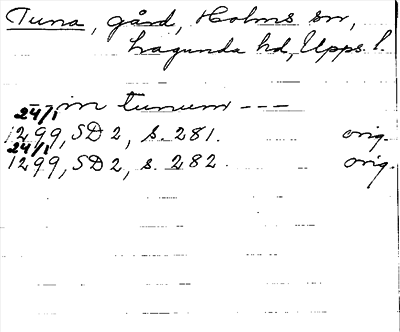 Tuna, gård, Holms sn,
Lagunda hd, Upps. l.
--- in tunum ---
24/1
1299, SD 2, s. 281. orig.
24/1
1299, SD 2, s. 282. orig.